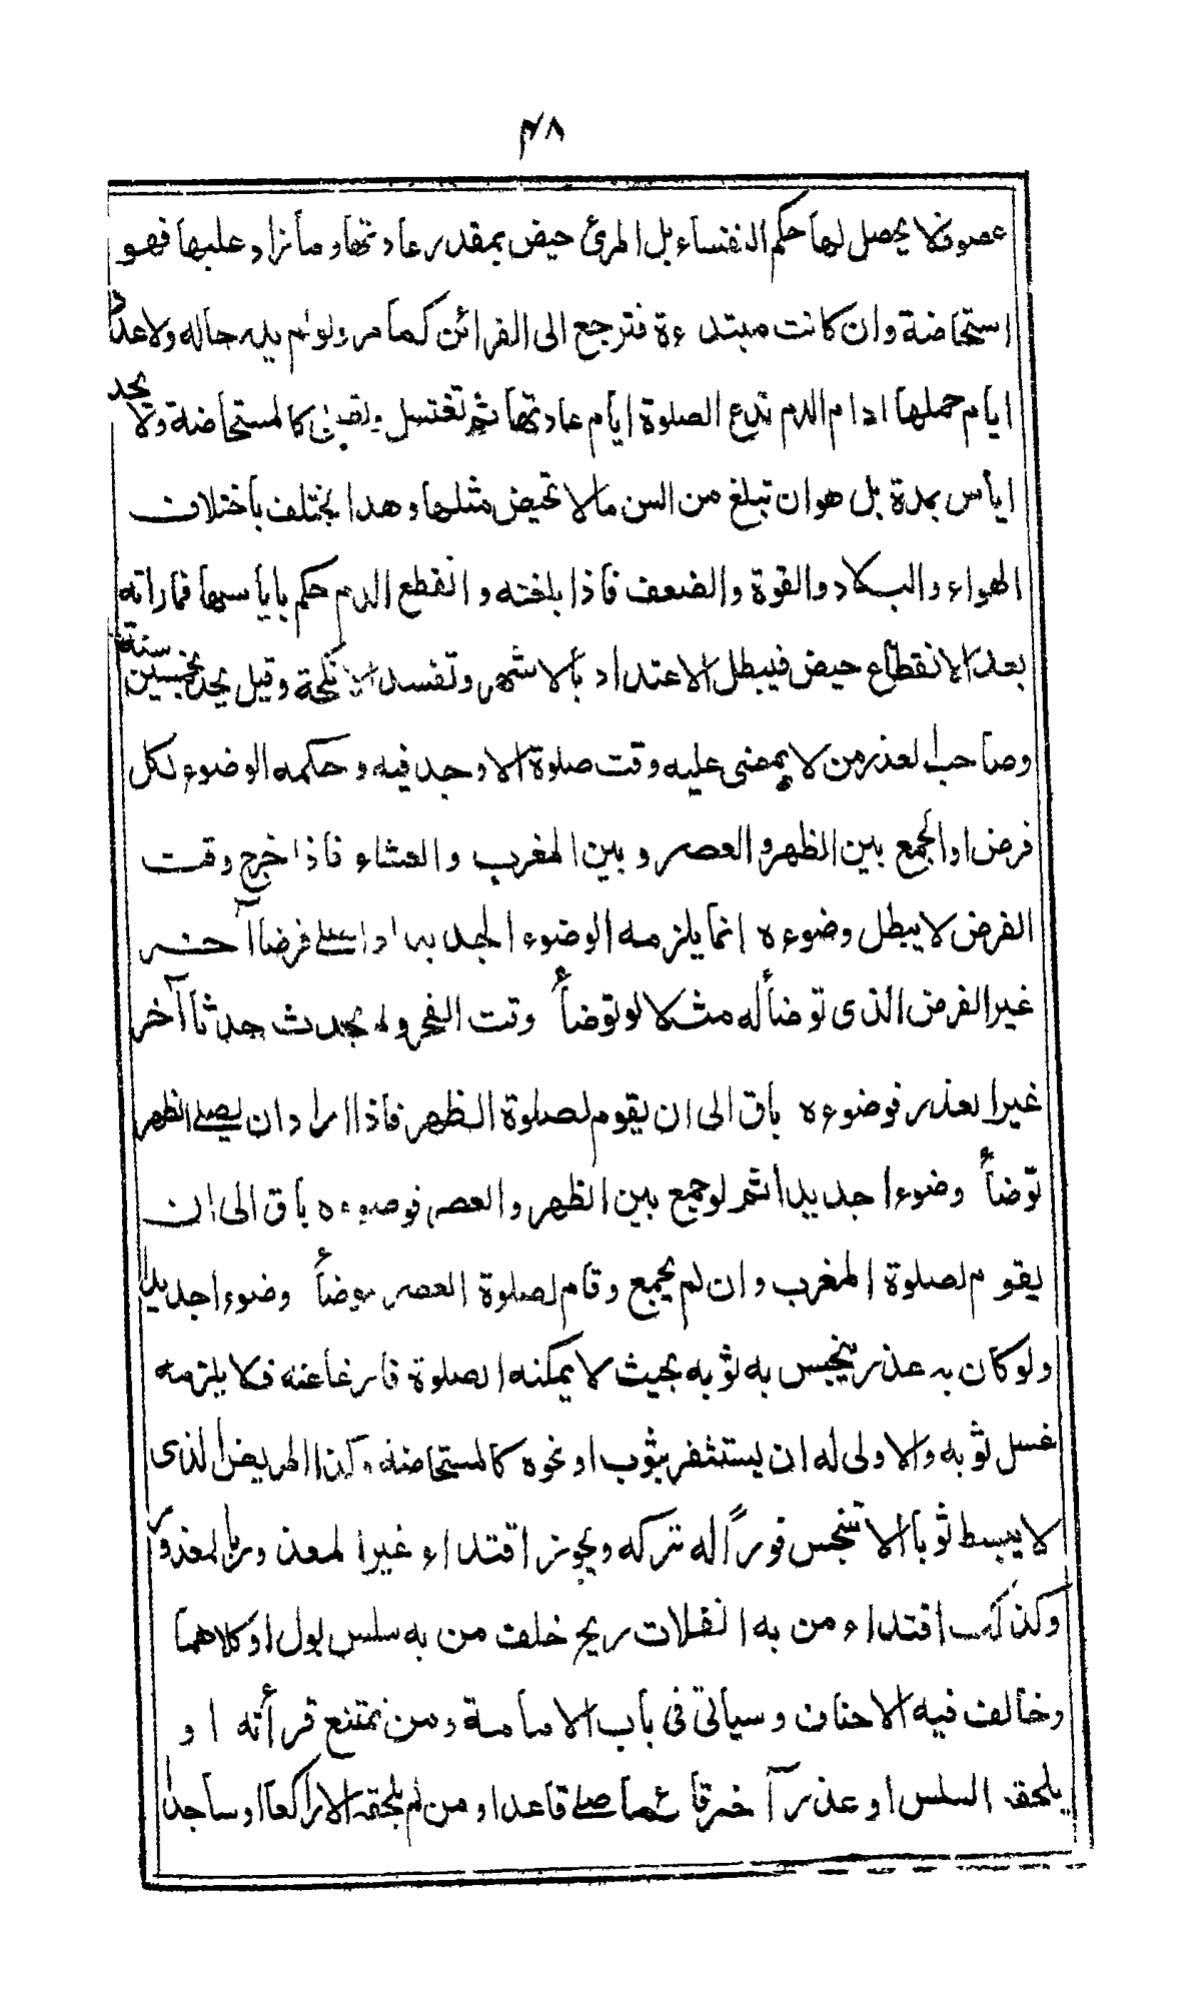 ٤٨
عضو فلا يحصل لها حكم النفساء بل المرئ حيض بمقدر عادتها وما زاد عليها فهو
استحاضة وان كانت مبتدءة فترجع الى القرائن كما مر ولو لم يدر حاله ولا عدد
ايام حملها ادام الدم تدع الصلوة ايام عادتها ثم تغتسل وتصلى كالمستحاضة ولا يحد
اياس بمدة بل هو ان تبلغ من السن ما لا تحيض مثلها وهذا يختلف باختلاف
الهواء والبلاد والقوة والضعف فاذا بلغته وانقطع الدم حكم باياسها فما راته
بعد الانقطاع حيض فيبطل الاعتداد بالاشهر وتفسد الانكحة وقيل يحد بخمسين سنة
وصاحب العذر من لا يمضى عليه وقت صلوة الا وجد فيه وحكمه الوضوء لكل
فرض او الجمع بين الظهر والعصر وبين المغرب والعشاء فاذا خرج وقت
الفرض لا يبطل وضوءه انما يلزمه الوضوء الجديد اذا صلى فرضا آخر
غير الفرض الذى توضأ له مثلا لو توضأ وقت الفجر ولم يحدث حدثا آخر
غير العذر فوضوءه باق الى ان يقوم لصلوة الظهر فاذا اراد ان يصلى الظهر
توضأ وضوءا جديدا ثم لو جمع بين الظهر والعصر فوضوءه باق الى ان
يقوم لصلوة المغرب وان لم يجمع وقام لصلوة العصر توضأ وضوءا جديدا
ولو كان به عذر ينجس به ثوبه بحيث لا يمكنه الصلوة فارغا عنه فلا يلزمه
غسل ثوبه والاولى له ان يستثفر بثوب او نحوه كالمستحاضة وكذا المريض الذى
لا يبسط ثوبا الا تنجس فورًا له تركه ويجوز اقتداء غير المعذور بالمعذور
وكذلك اقتداء من به انفلات ريح خلف من به سلس بول او كلاهما
وخالف فيه الاحناف وسياتى فى باب الامامة ومن تمتنع قرأته او
يلحقه السلس او عذر آخر قائما صلى قاعدا ومن لم يلحقه الا راكعا او ساجدا